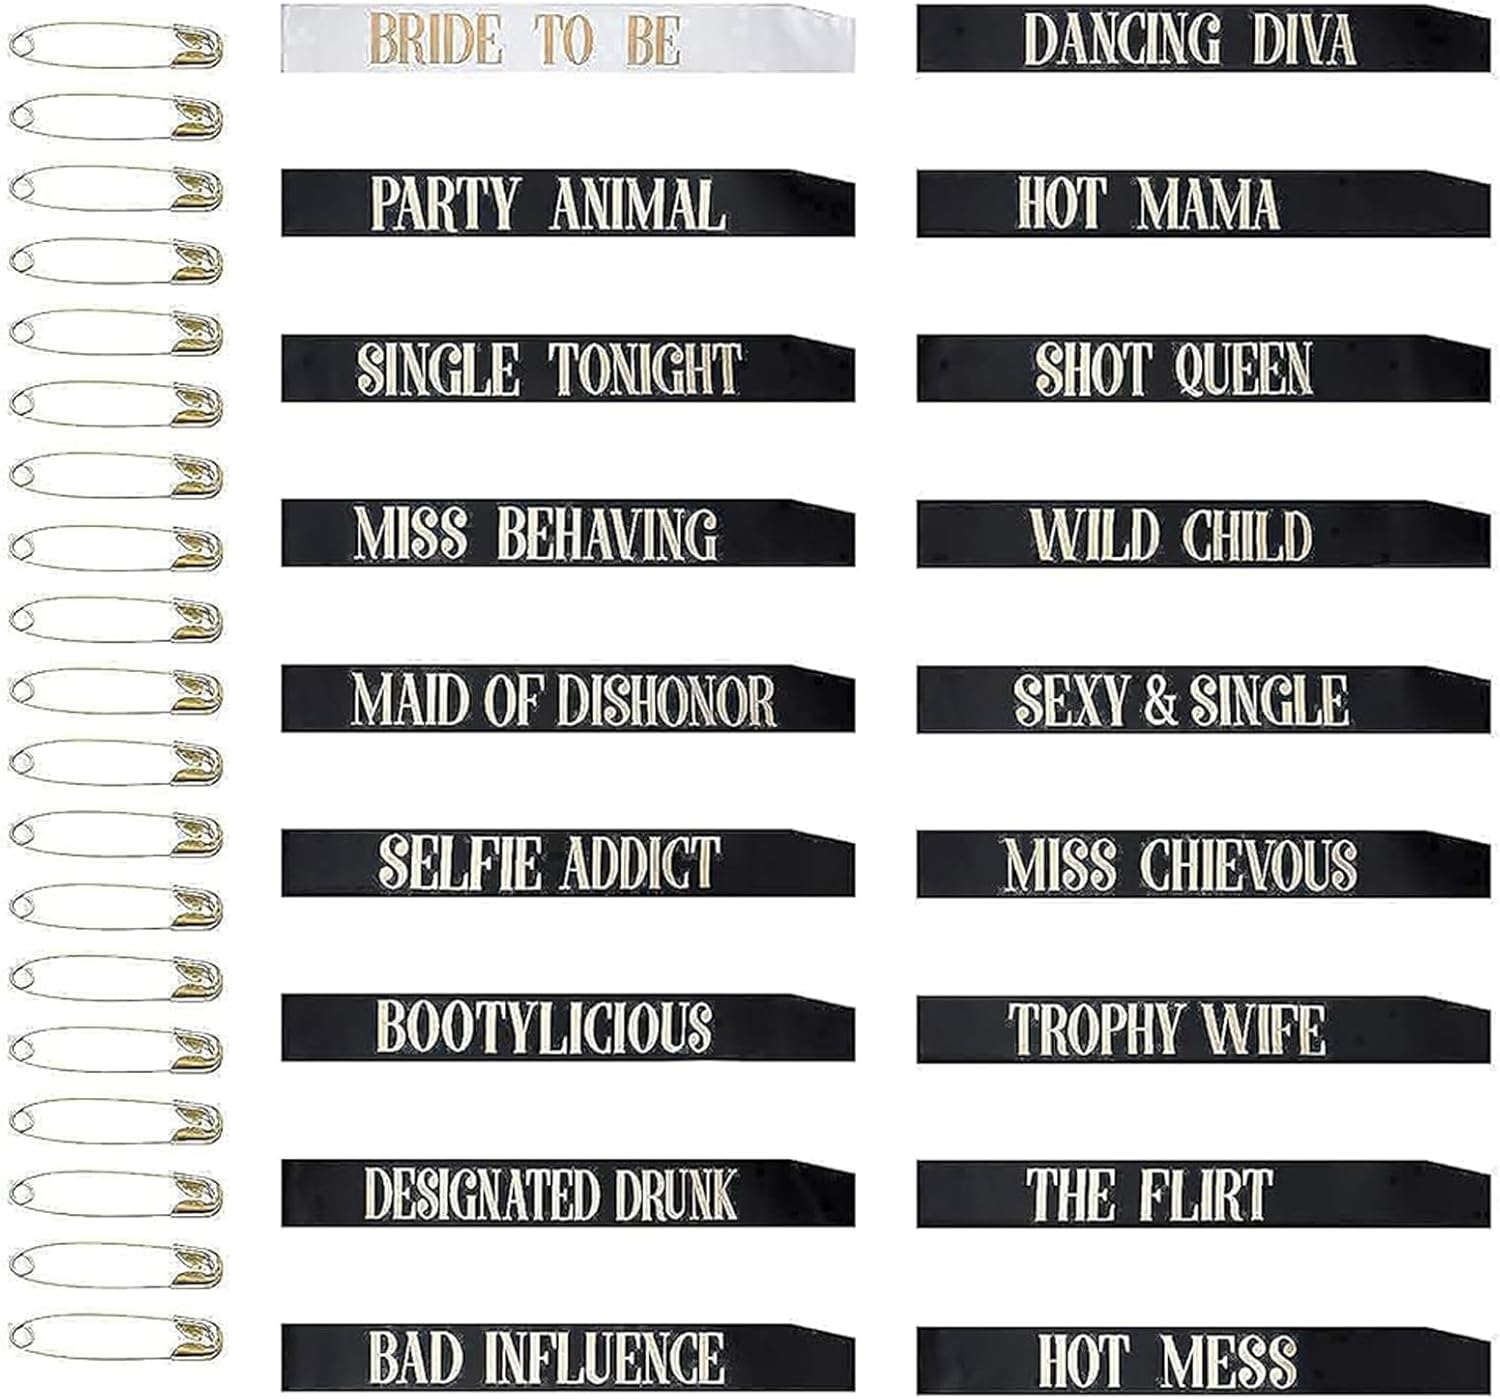 BRIDE TO BE
DANCING DIVA
PARTY ANIMAL
HOT MAMA
SINGLE TONIGHT
SHOT QUEEN
MISS BEHAVING
WILD CHILD
MAID OF DISHONOR
SEXY & SINGLE
SELFIE ADDICT
MISS CHIEVOUS
BOOTYLICIOUS
TROPHY WIFE
DESIGNATED DRUNK
THE FLIRT
BAD INFLUENCE
HOT MESS